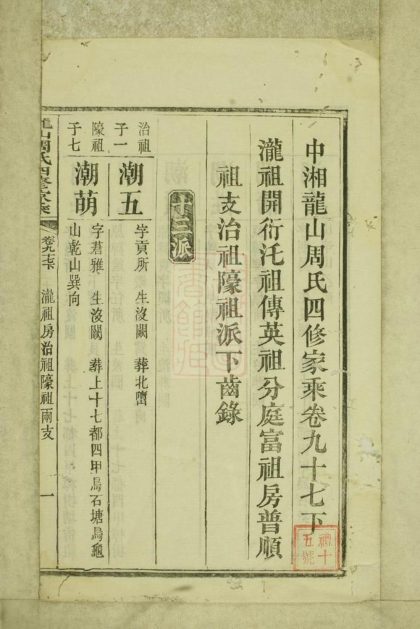 中湘龍山周氏四修家乘卷九十七下
瀧祖開衍汑祖傳英祖分庭富祖房普順
祖支治祖隊祖派下齒錄
十三派
治祖
子一
潮五
字貢所 生沒闕 葬北壋
隊祖
子七
潮萌
字君雅 生沒闕 葬上十七都四甲烏石塘烏龜
山乾山巽向
龍山周氏四修家乘
瀧祖房治祖隊祖兩支
一